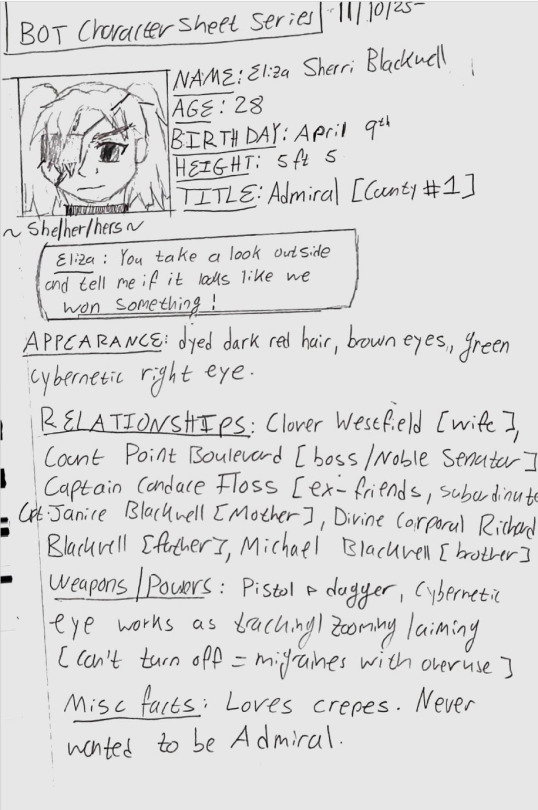 BOT Character Sheet Series
11/10/25
NAME: Eliza Sherri Blackwell
AGE: 28
BIRTHDAY: April 9th
HEIGHT: 5 ft 5
TITLE: Admiral [County #1]
~ She/her/hers ~
Eliza: You take a look outside
and tell me if it looks like we
won something!
APPEARANCE: dyed dark red hair, brown eyes,, green
cybernetic right eye.
RELATIONSHIPS: Clover Westfield [wife],
Count Point Boulevard [boss/Noble Senator]
Captain Candace Floss [ex-friends, subordinate
Cpt. Janice Blackwell [Mother], Divine Corporal Richard
Blackwell [father], Michael Blackwell [brother]
Weapons/Powers: Pistol + dagger, Cybernetic
eye works as tracking/zooming/aiming
[can't turn off = migraines with overuse]
Misc facts: Loves crepes. Never
wanted to be Admiral.